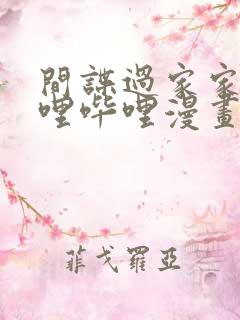 間諜過家家
哩哔哩漫畫
菲戈羅亞